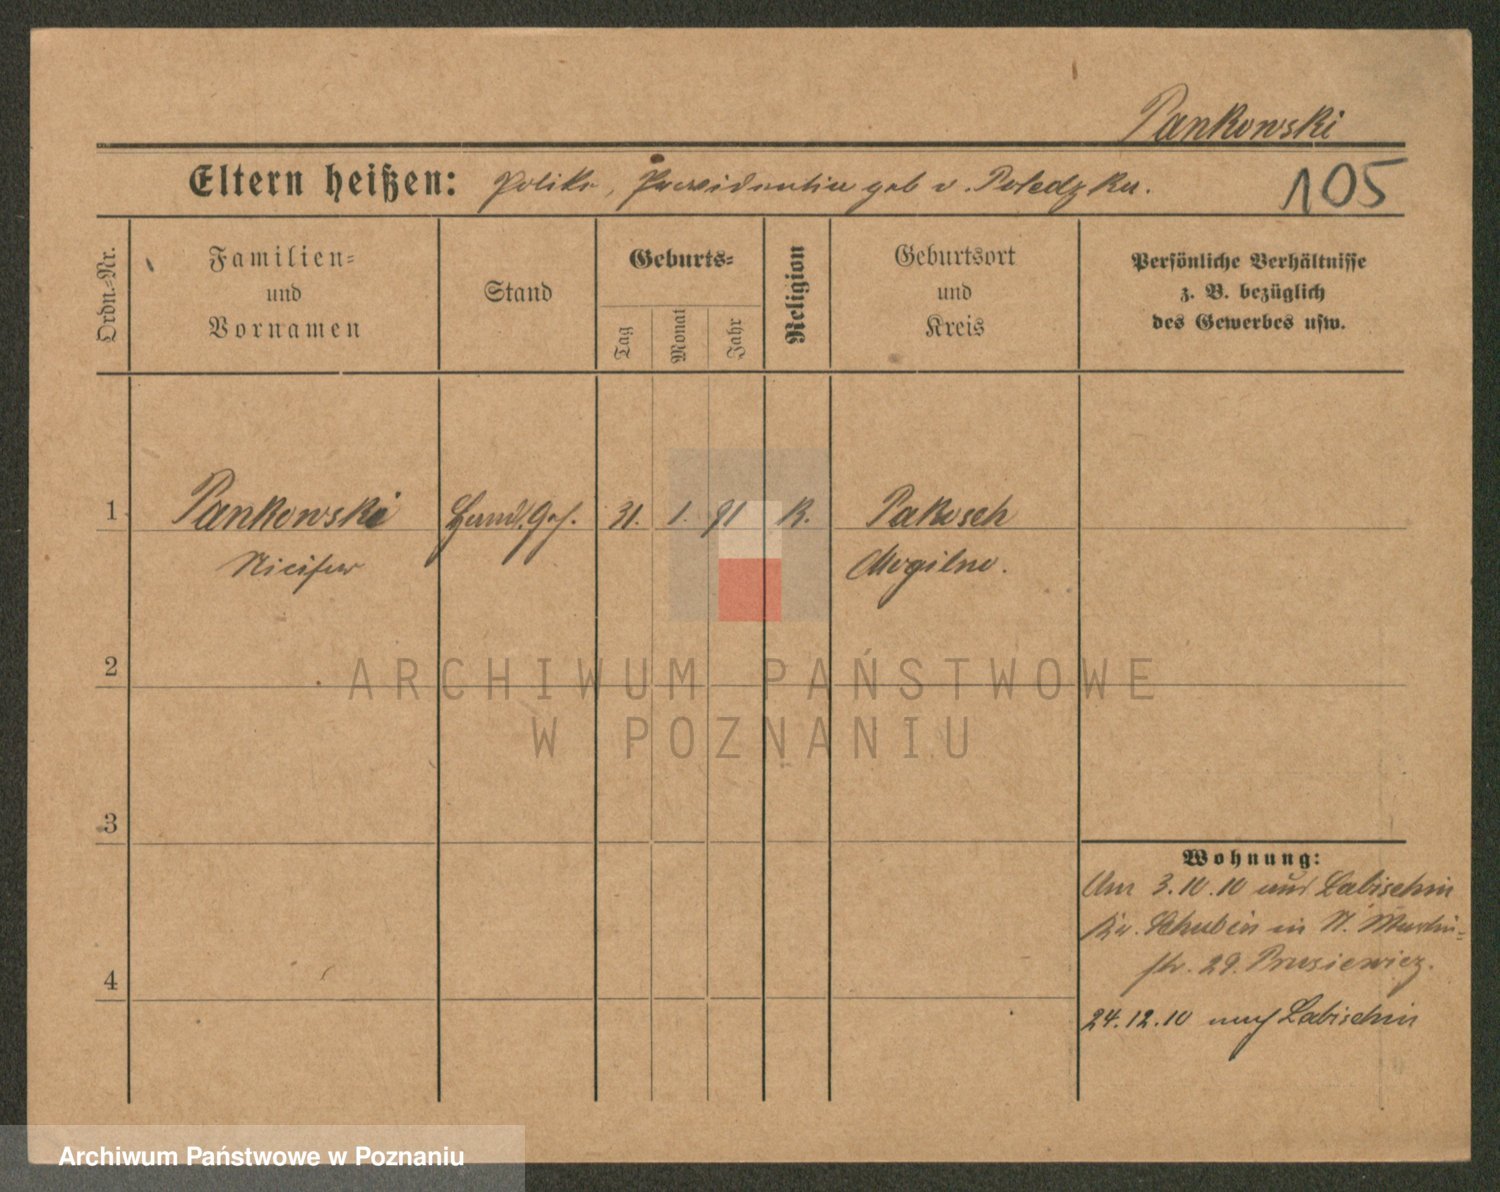 Pankowski
Eltern heißen: geb v.
105
Ordn.-Nr.
Familien-
und
Vornamen
Stand
Geburts-
Tag
Monat
Jahr
Religion
Geburtsort
und
Kreis
Persönliche Verhältnisse
z. B. bezüglich
des Gewerbes usw.
1 Pankowski Handl. Geh. 31. 1. 91 K. Pakosch
Mogilno.
2
ARCHIWUM PAŃSTWOWE
W POZNANIU
3
Wohnung:
Am 3.10.10 aus Labischin
Kr. Schubin in St. Martin-
str. 29. Prusiewicz.
4
24.12.10 nach Labischin
Archiwum Państwowe w Poznaniu